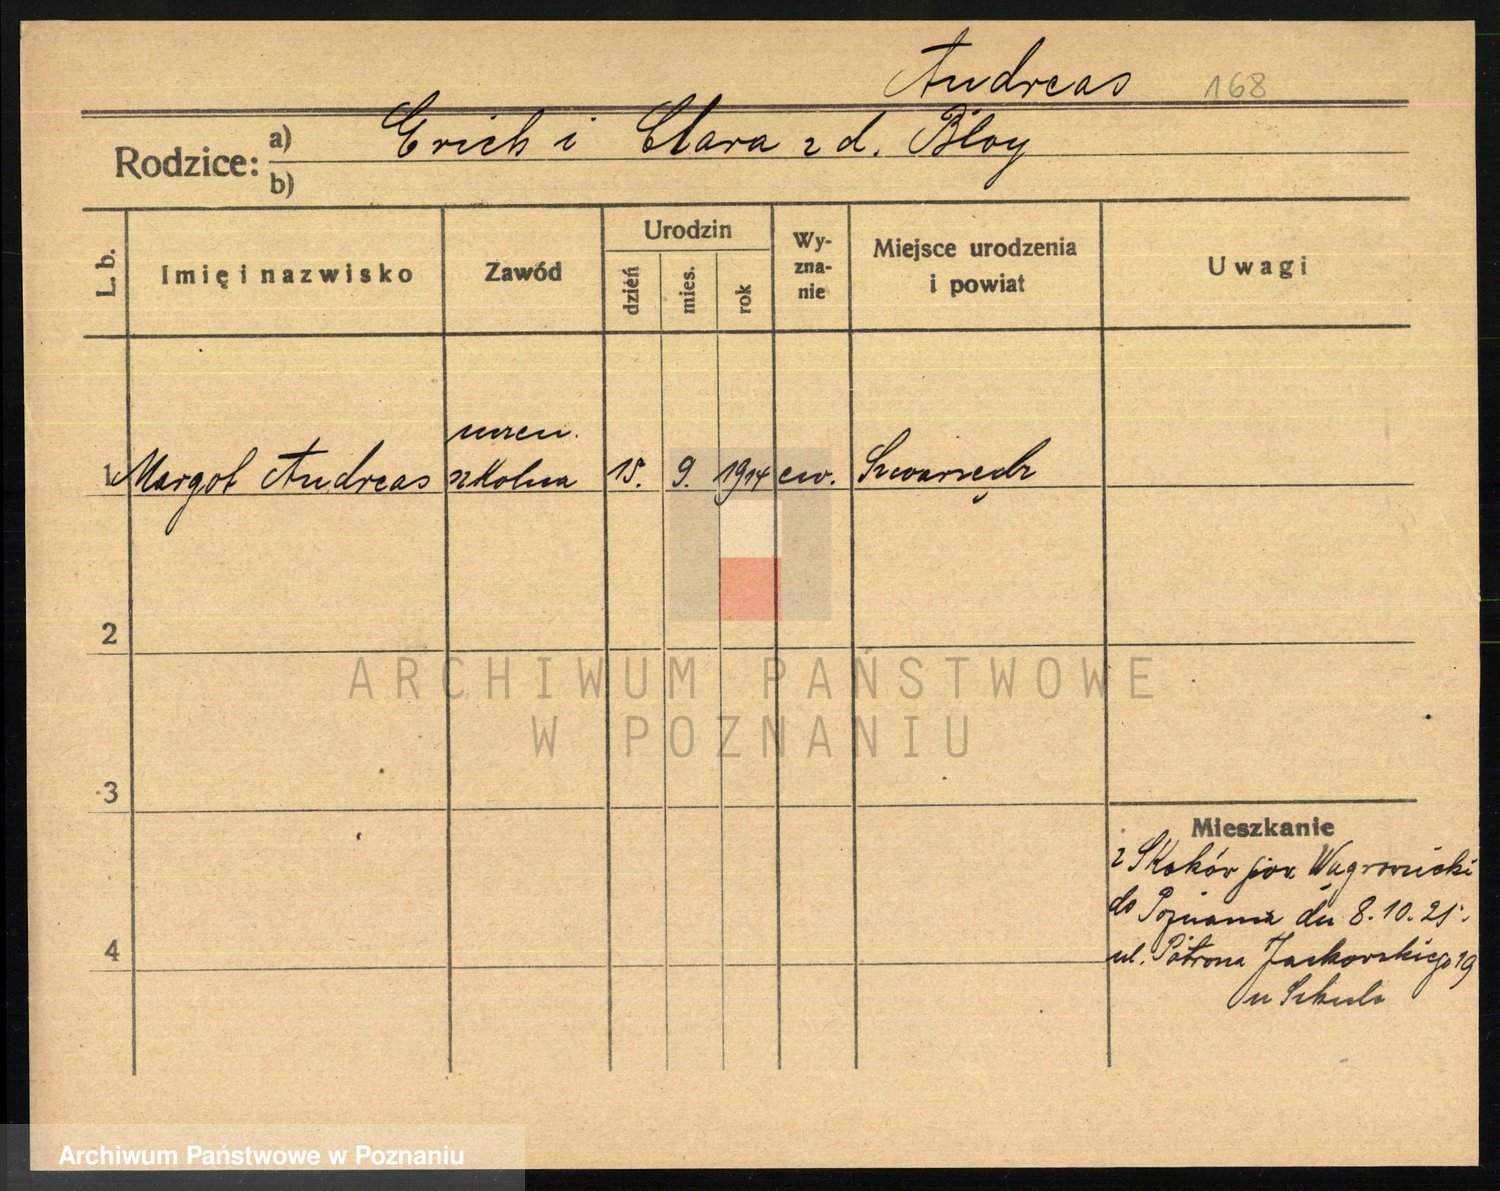 Andreas 168
Rodzice: a) Erich i Clara z d. Bloy
b)
L. b. Imię i nazwisko Zawód Urodzin dzień mies. rok Wy-zna-nie Miejsce urodzenia i powiat Uwagi
uczen.
1 Margot Andreas szkolna 15. 9. 1914 ew. Swarzędz
2
ARCHIWUM PAŃSTWOWE
W POZNANIU
3
Mieszkanie
z Skoków pow Wągrowiecki
do Poznania dn 8.10.25.
4
ul. Patrona Jackowskiego 19
u Szkulc
Archiwum Państwowe w Poznaniu